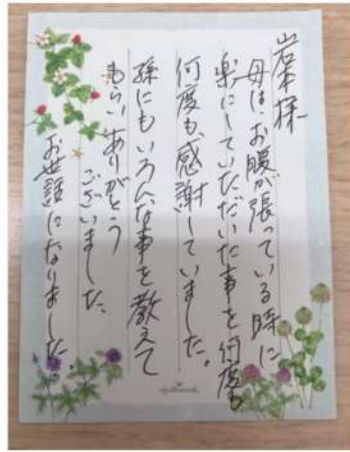 岩本様
母は、お腹が張っている時に
楽にしていただいた事を何度も
何度も、感謝していました。
孫にもいろんな事を教えて
もらい、ありがとう
ございました。
お世話になりました。
Hallmark